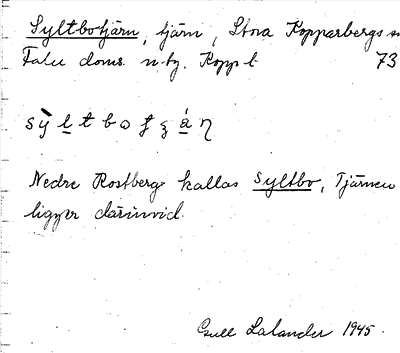 Syltbotjärn, tjärn, Stora Kopparbergs sn
Falu doms. n-tg. Kopp.l. 73
Nedre Rostberg kallas Syltbo, Tjärnen
ligger därinvid.
Gull Lalander 1945.